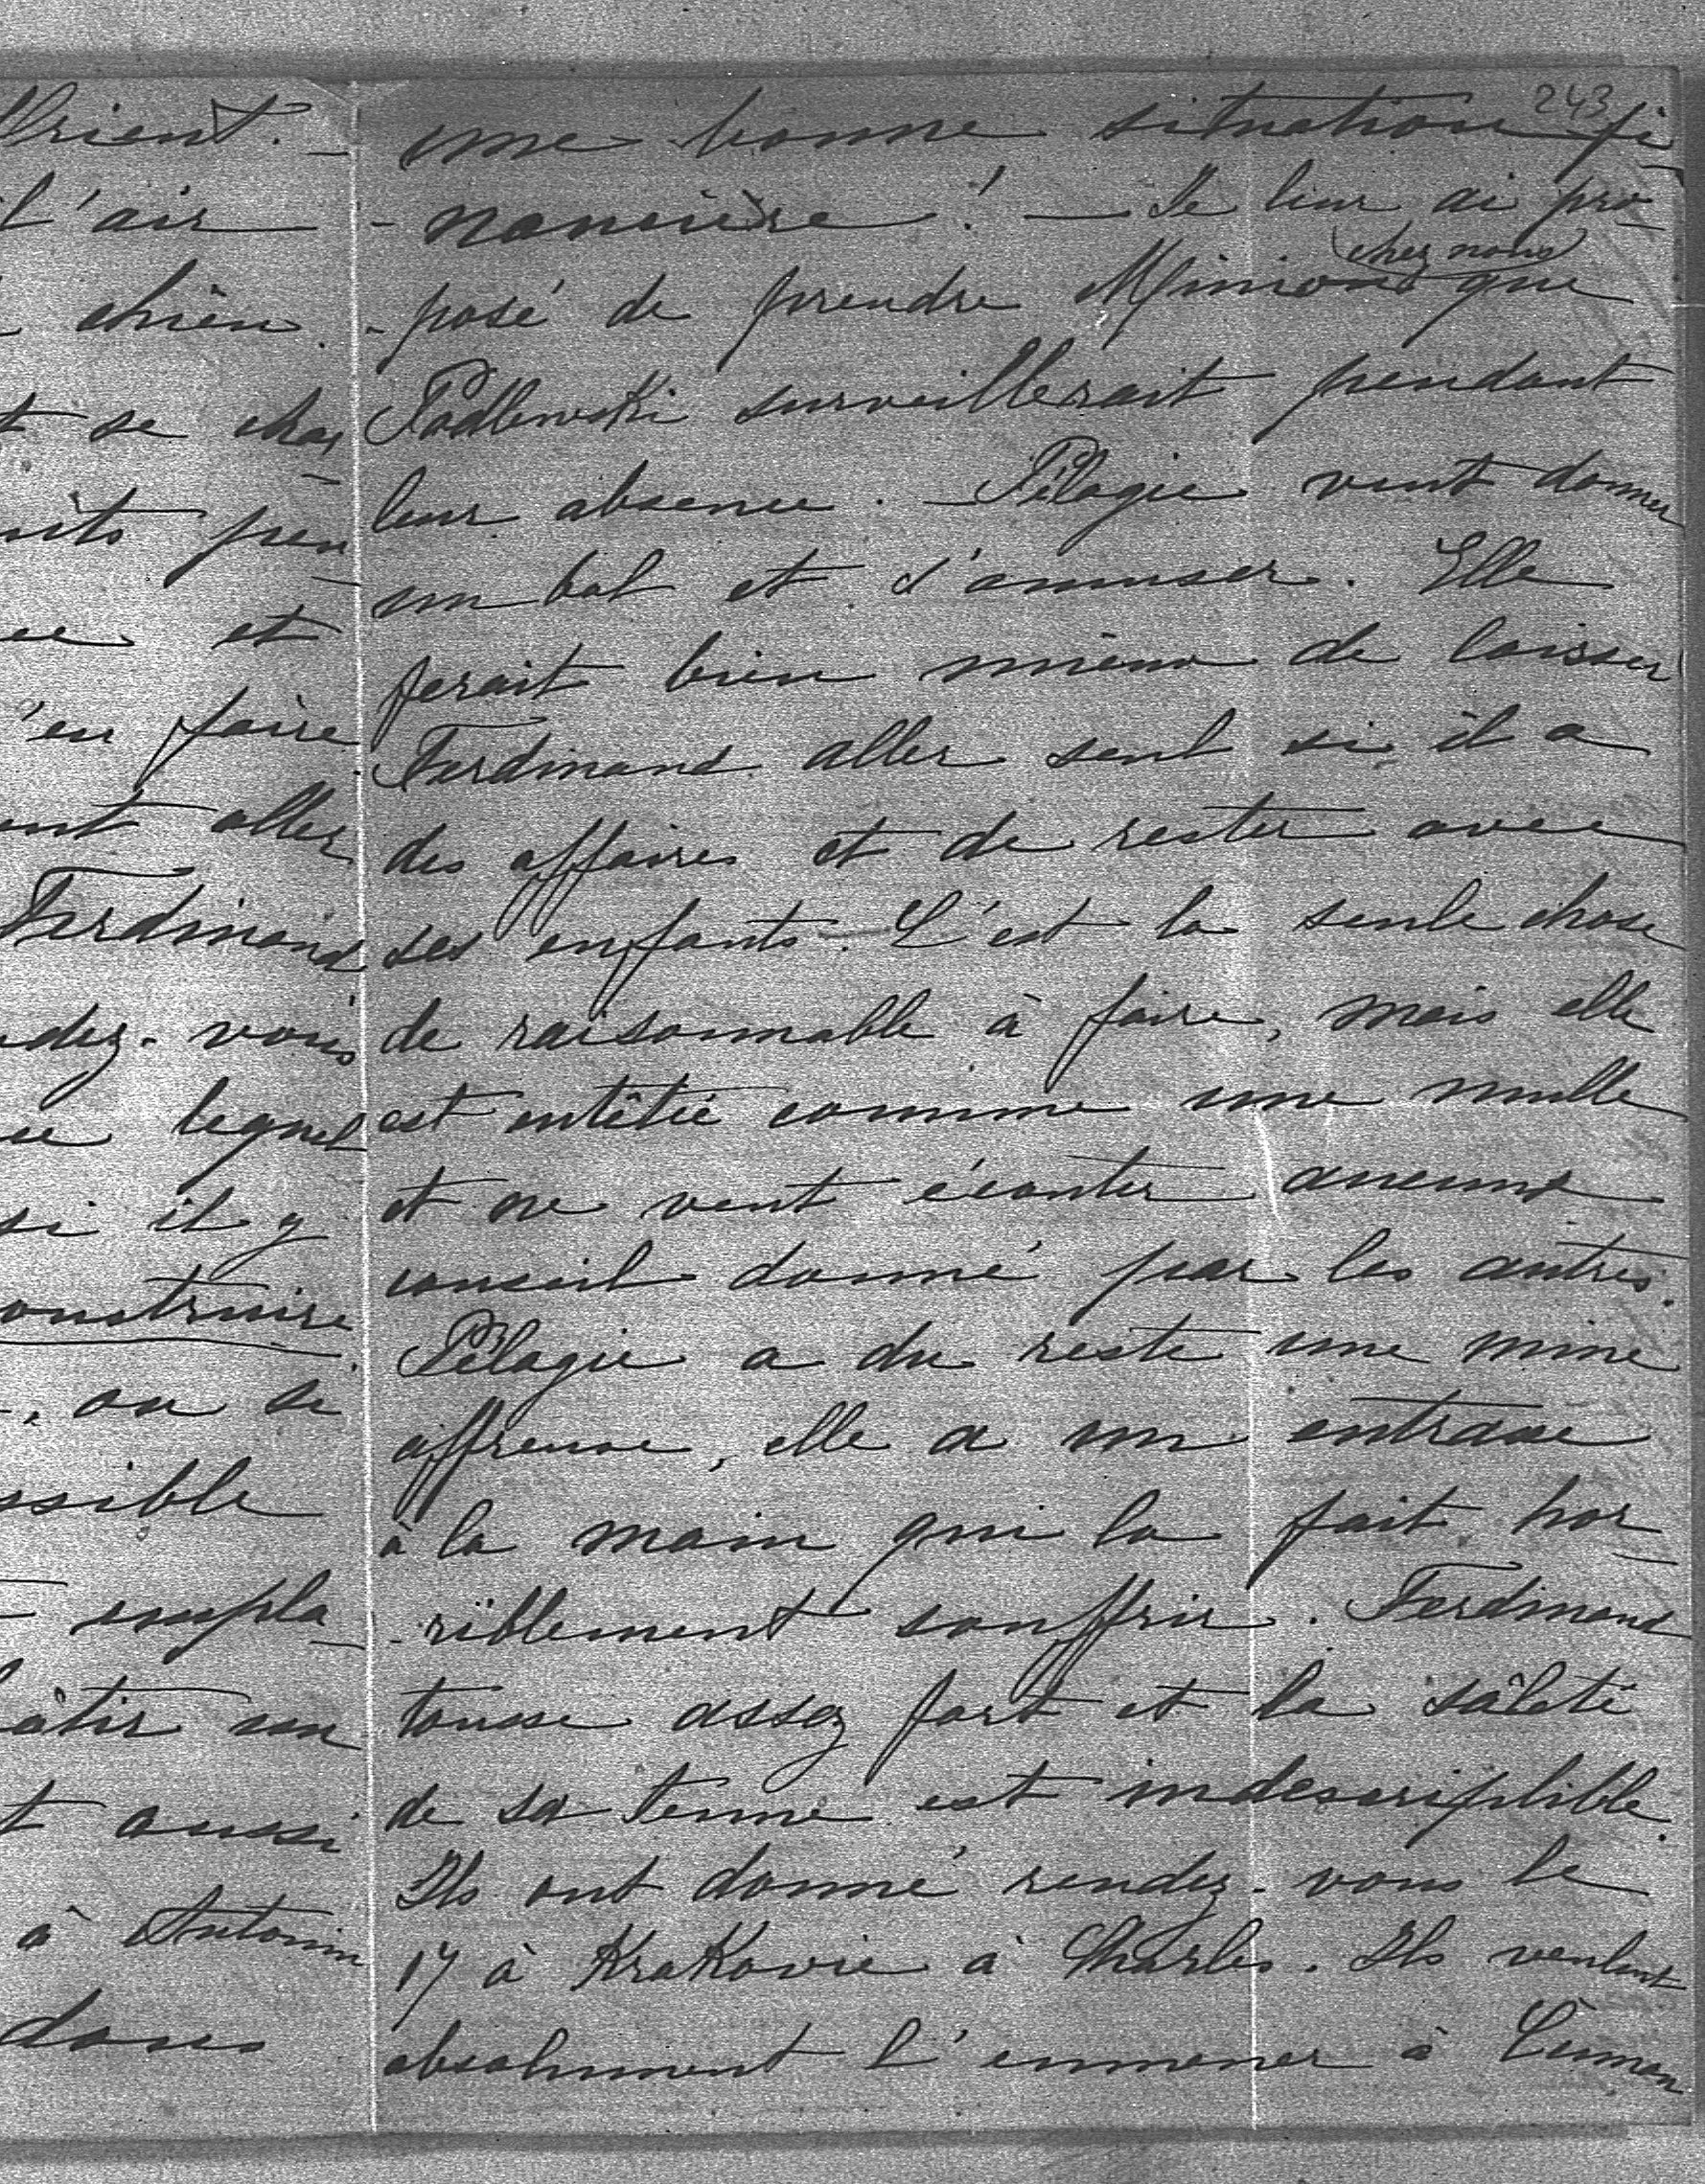 l'air
chien.
t se char
et
'en faire
aller
Ferdinand
dez-vous
lequel
si il y
onstruire
, ou si
ssible
empla-
âtir un
t aussi
à Antonin
dans
243
une bonne situation fi-
-nancière! — Je leur ai pro-
chez nous
-posé de prendre Minion que
Podlewski surveillerait pendant
leur absence. — Pélagie veut donner
un bal et s'amuser. Elle
ferait bien mieux de laisser
Ferdinand aller seul si il a
des affaires et de rester avec
ses enfants. C'est la seule chose
de raisonnable à faire, mais elle
est entêtée comme une mulle
et ne veut écouter aucuns
conseil donné par les autres.
Pélagie a du reste une mine
affreuse, elle a un
à la main qui la fait hor-
-riblement souffrir. Ferdinand
tousse assez fort et la saleté
de sa tenue est indescriptible.
Ils ont donné rendez-vous le
17 à Krakovie à Charles. Ils veulent
absolument l'emmener à